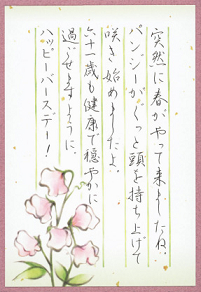 突然に春がやって来ましたね。
パンジーがくっと頭を持ち上げて
咲き始めましたよ。
六十一歳も健康で穏やかに
過ごせますように。
ハッピーバースデー!